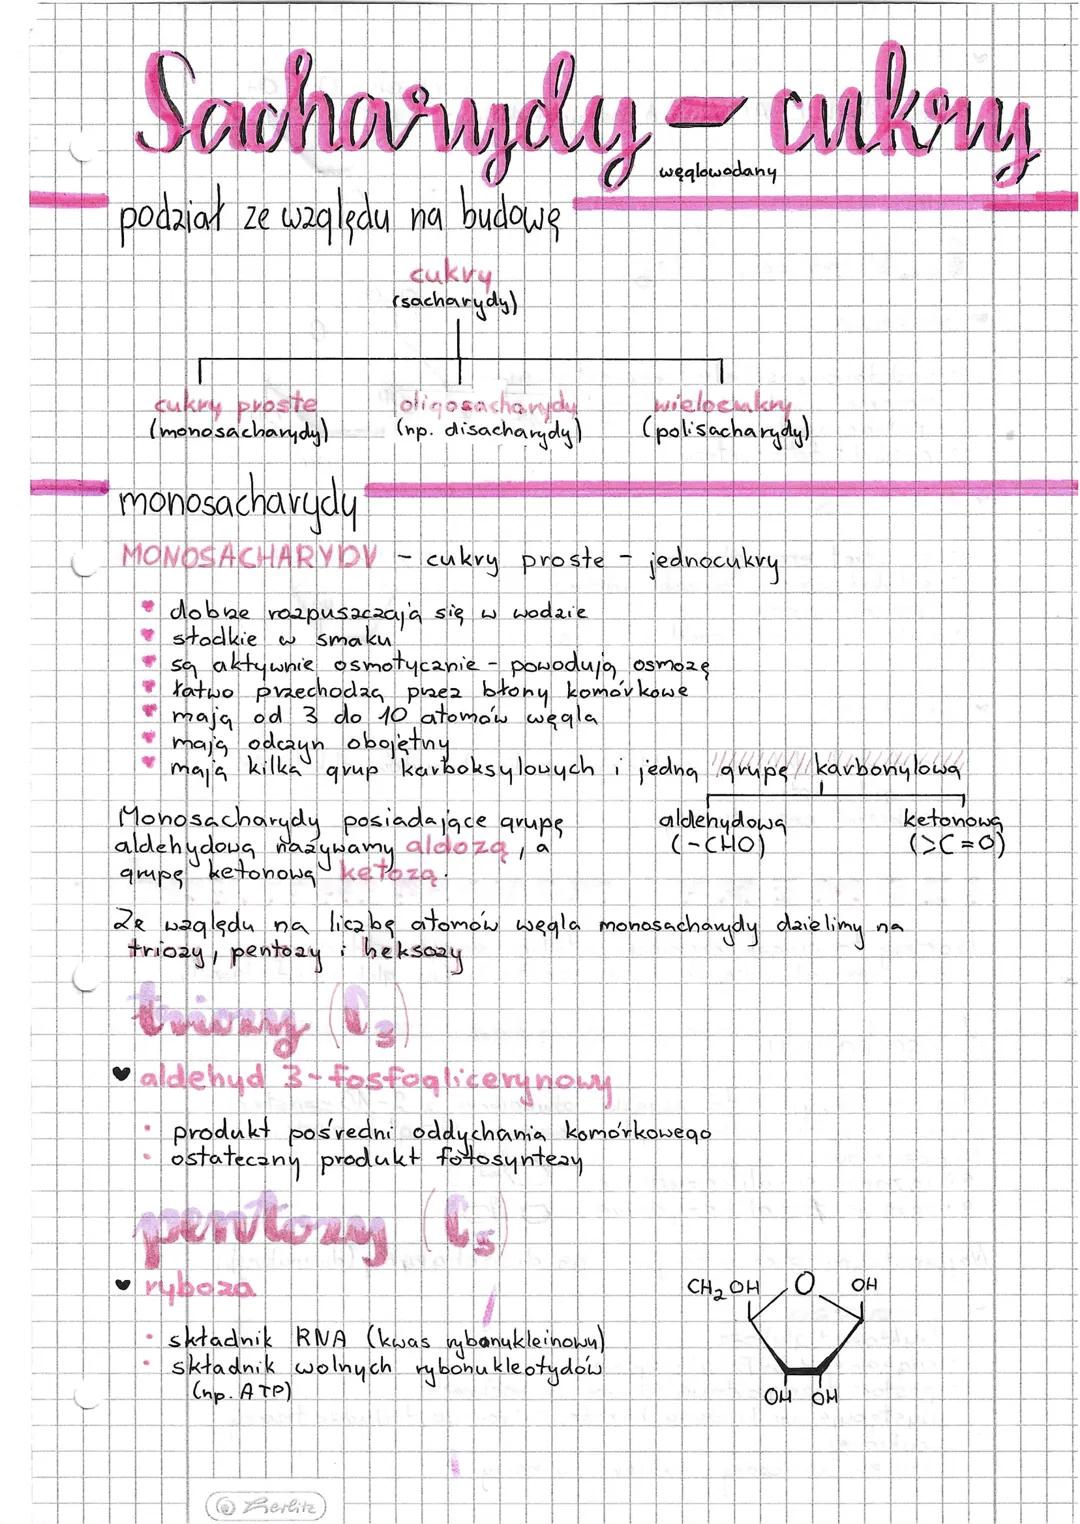 Sacharydy - cukry
węglowodany
podział ze względu na budowę
cukry
(sacharydy)
cukry proste
(monosacharydy)
oligosacharydy
(np. disacharydy)
wielocukry
(polisacharydy)
monosacharydy
MONOSACHARYDY - cukry proste - jednocukry
dobrze rozpuszczają się w wodzie
słodkie w smaku
są aktywnie osmotycznie - powodują osmozę
łatwo przechodzą przez błony komórkowe
mają od 3 do 10 atomów węgla
mają odczyn obojętny
mają kilka grup karboksylowych i jedną grupę karbonylową
aldehydową
(-CHO)
ketonową
(>C=O)
Monosacharydy posiadające grupę
aldehydową nazywamy aldozą, a
grupę ketonową ketozą.
Ze względu na liczbę atomów węgla monosacharydy dzielimy na
triozy, pentozy i heksozy
triozy (C3)
♥ aldehyd 3-fosfoglicerynowy
• produkt pośredni oddychania komórkowego
• ostateczny produkt fotosyntezy
pentozy (C5)
♥ ryboza
• składnik RNA (kwas rybonukleinowy)
• składnik wolnych rybonukleotydów
(np. ATP)
CH2OH O OH
OH OH
Herlitz